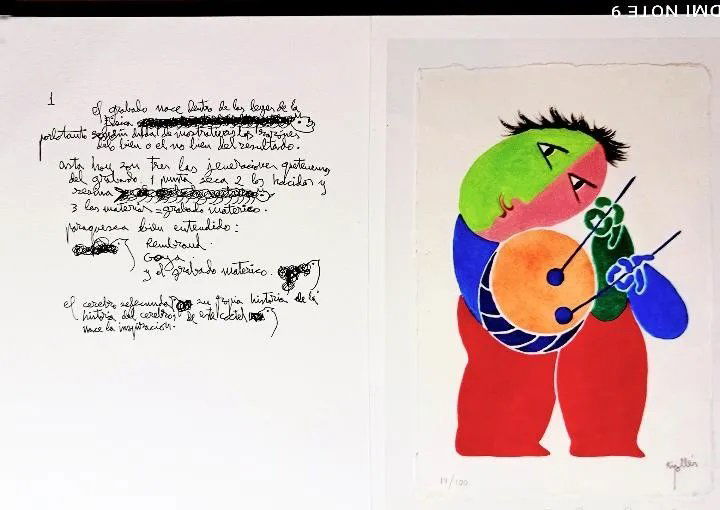 DMI NOTE 9
1
el grabado nace dentro de las leyes de la
física
por lo tanto según dudas demostrativas las razones
del bien o el no bien del resultado.
asta hoy son tres las jeneraciones que tenemos
del grabado 1 punta seca 2 los hacidos y
resina
3 las materias = grabado materico.
para que sea bien entendido:
Rembrand.
Goya
y el grabado materico.
el cerebro se fecunda su propia historia de la
historia del cerebro, de este
nace la inspiracion.
14/100